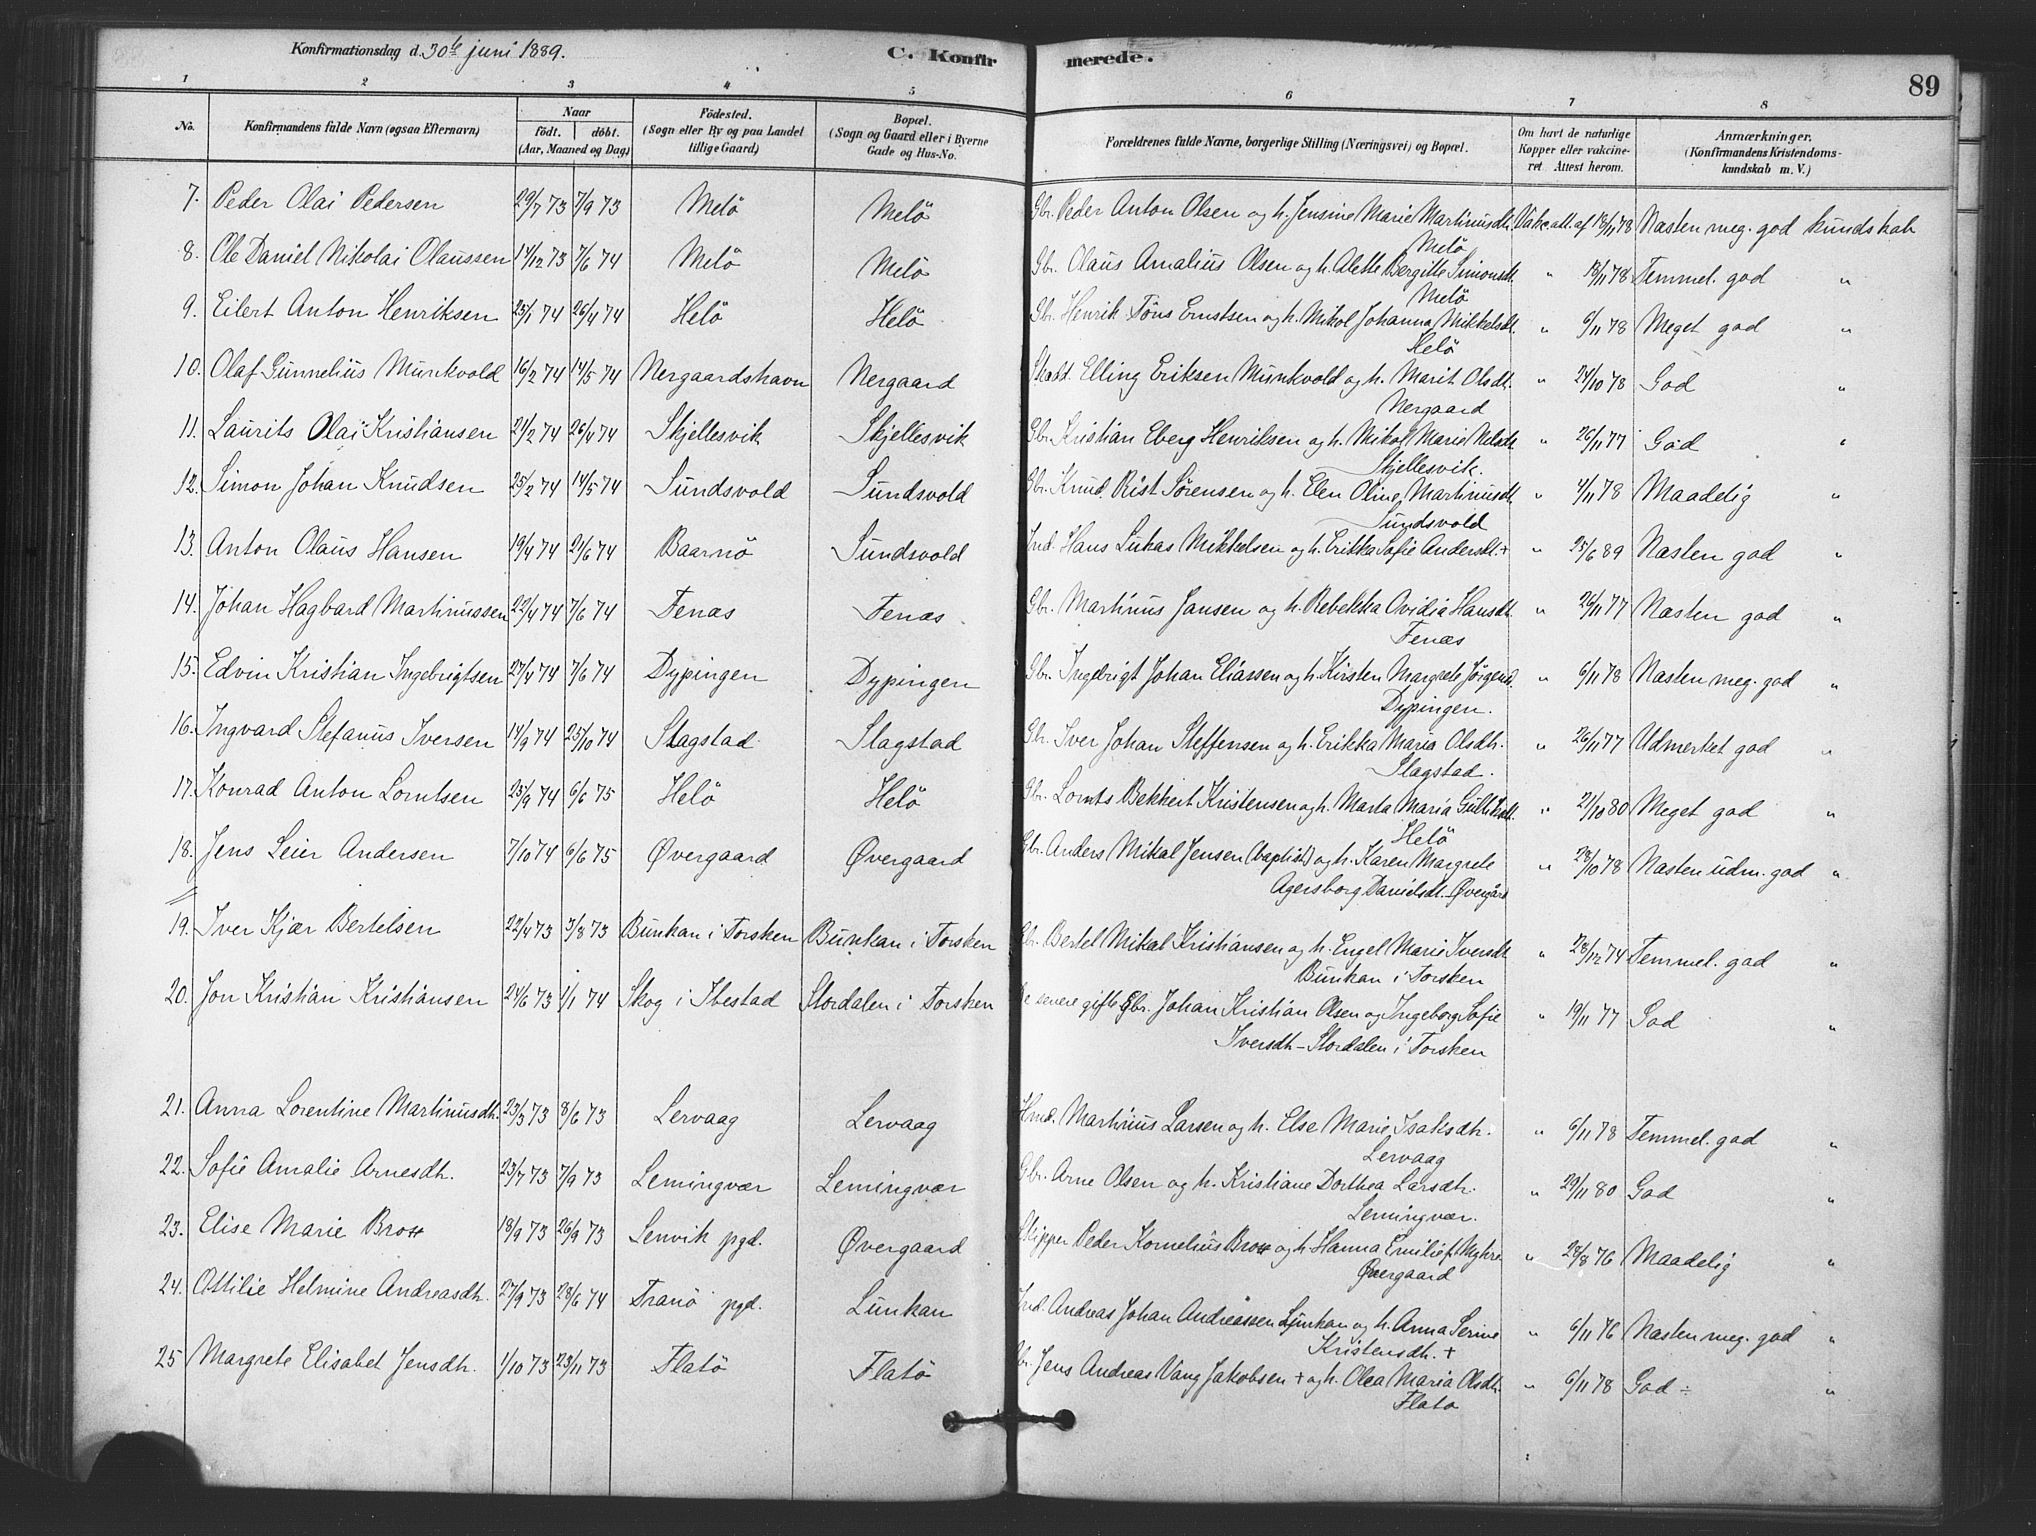 Konfirmationsdag d. 30te juni 1889. C. Konfirmerede. 89
1 2 3 4 5 6 7 8
No. Konfirmandens fulde Navn (ogsaa Efternavn) Naar födt. döbt. (Aar, Maaned og Dag) Födested. (Sogn eller By og paa Landet tillige Gaard) Bopæl. (Sogn og Gaard eller i Byerne Gade og Hus-No. Forældrenes fulde Navne, borgerlige Stilling (Næringsvei) og Bopæl. Om havt de naturlige Kopper eller vakcineret Attest herom. Anmærkninger. (Konfirmandens Kristendomskundskab m. V.)
7. Peder Olai Pedersen 29/7 73 7/9 73 Melö Melö Gbr. Peder Anton Olsen og h. Jensine Marie Martinusdt. Vakc. att. af 18/11 78 Næsten meg. god kundskab
Melö
8. Ole Daniel Nikolai Olaussen 14/12 73 7/6 74 Melö Melö Gbr. Olaus Amalius Olsen og h. Alette Bergitte Simonsdt. " 18/11 78 Temmel. god "
Melö
9. Eilert Anton Henriksen 25/1 74 26/4 74 Helö Helö Gbr. Henrik Töns Ernstsen og h. Nikol. Johanna Mikkelsdt. " 6/11 78 Meget god "
Helö
10. Olaf Gunnelius Munkvold 16/2 74 14/5 74 Nergaardshavn Nergaard Elling Eriksen Munkvold og h. Marit Olsdt. " 24/10 78 God "
Nergaard
11. Laurits Olai Kristiansen 21/2 74 26/4 74 Skjellesvik Skjellesvik Gbr. Kristian Eberg Henriksen og h. Nikol. Marie Nilsdt. " 26/11 77 God "
Skjellesvik.
12. Simon Johan Knudsen 25/2 74 14/5 74 Sundsvold Sundsvold Gbr. Knud Rist Sörensen og h. Elen Oline Martinusdt " 4/11 78 Maadelig "
Sundsvold
13. Anton Olaus Hansen 19/4 74 21/6 74 Baarnö Sundsvold Ind. Hans Lukas Mikkelsen og h. Erikka Sofie Andersdt. + " 25/6 89 Næsten god "
14. Johan Hagbard Martinussen 22/4 74 7/6 74 Fenæs Fenæs Gbr. Martinus Jansen og h. Rebekka Ovidia Hansdt. " 26/11 77 Næsten god "
Fenæs
15. Edvin Kristian Ingebrigtsen 27/4 74 7/6 74 Dypingen Dypingen Gbr. Ingebrigt Johan Eliassen og h. Kirsten Margrete Jörgensd. " 6/11 78 Næsten meg. god "
Dypingen.
16. Ingvard Stefanus Iversen 14/9 74 25/10 74 Slagstad Slagstad Gbr. Iver Johan Steffensen og h. Erikka Maria Olsdt. " 26/11 77 Udmerket god "
Slagstad.
17. Konrad Anton Lorntsen 23/9 74 6/6 75 Helö Helö Gbr. Lornts Bekkert Kristensen og h. Marta Maria Gulliksdt. " 21/10 80 Meget god "
Helö
18. Jens Leier Andersen 7/10 74 6/6 75 Øvergaard Øvergaard Gbr. Anders Mikal Jensen (baptist) og h. Karen Margrete " 28/10 78 Næsten udm. god "
Agersborg Danielsdt. Øvergård
19. Iver Kjær Bertelsen 22/4 73 3/8 73 Bunkan i Torsken Bunkan i Torsken Gbr. Bertel Mikal Kristiansen og h. Engel Marie Iversdt " 28/12 74 Temmel. god "
Bunkan i Torsken
20. Jon Kristian Kristiansen 24/6 73 1/1 74 Skog i Ibestad Stordalen i Torsken De senere gifte Gbr. Johan Kristian Olsen og Ingeborg Sofie " 19/11 77 God "
Iversdt - Stordalen i Torsken
21. Anna Lorentine Martinusdt. 23/3 73 8/6 73 Lervaag Lervaag Hmd. Martinus Larsen og h. Else Marie Isaksdt. " 6/11 78 Temmel. god "
Lervaag
22. Sofie Amalie Arnesdt. 23/7 73 7/9 73 Lemingvær Lemingvær Gbr. Arne Olsen og h. Kristiane Dorthea Larsdt. " 29/11 80 God "
Lemingvær.
23. Elise Marie Brox 18/9 73 26/9 73 Lenvik pgd. Øvergaard Skipper Peder Kornelius Brox og h. Hanna Emilie f. Myhre " 28/8 76 Maadelig "
Øvergaard
24. Ottilie Helmine Andreasdt. 27/9 73 28/6 74 Tranö pgd. Lunkan Ind. Andreas Johan Andreassen Lunkan og h. Anna Serine " 6/11 76 Næsten meg. god "
Kristensdt. +
25 Margrete Elisabet Jensdt. 1/10 73 23/11 73 Flatö Flatö Gbr. Jens Andreas Vang Jakobsen + og h. Olea Maria Olsdt. " 6/11 78 God ÷ "
Flatö